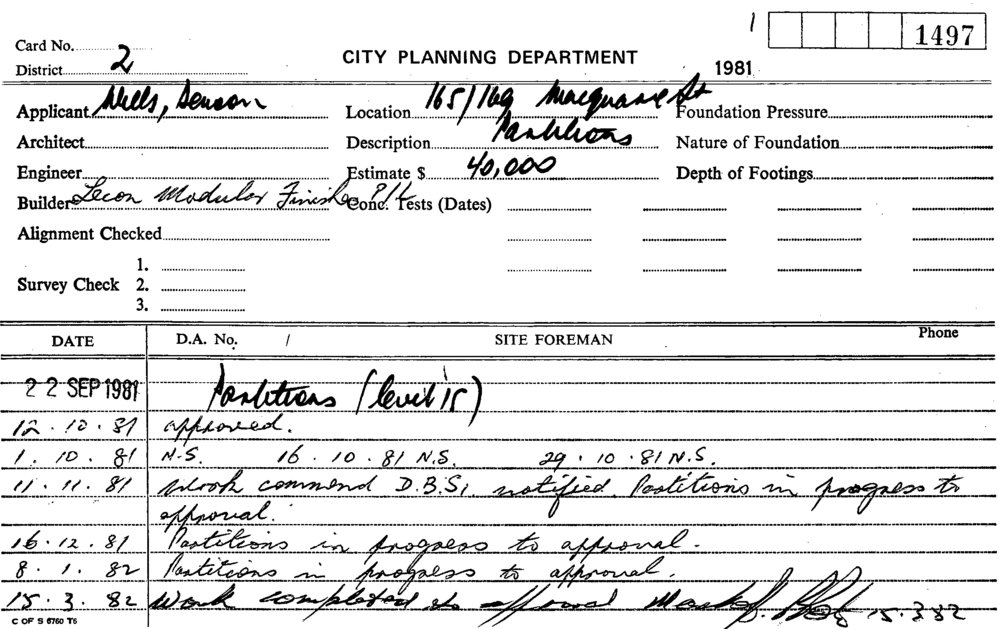 1 1497
Card No. 2
CITY PLANNING DEPARTMENT
District
1981
Applicant Wells, Denson Location 165/169 Macquarie St Foundation Pressure
Architect Description Partitions Nature of Foundation
Engineer Estimate $ 40,000 Depth of Footings
Builder Lecon Modular Finishes P/L Conc. Tests (Dates)
Alignment Checked
1.
Survey Check 2.
3.
DATE D.A. No. / SITE FOREMAN Phone
22 SEP 1981 Partitions (level 15)
12.10.81 approved.
1.10.81 N.S. 16.10.81 N.S. 29.10.81 N.S.
11.11.81 Work commend D.B.S. notified. Partitions in progress to
approval.
16.12.81 Partitions in progress to approval.
8.1.82 Partitions in progress to approval.
15.3.82 Work completed to approval 15.3.82
C OF S 6760 T6